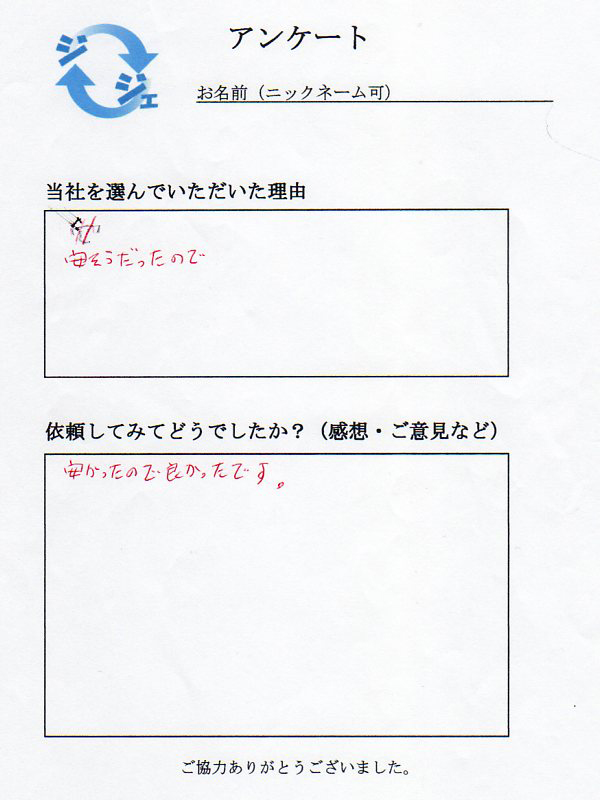 ジジェ
アンケート
お名前（ニックネーム可）
当社を選んでいただいた理由
安そうだったので
依頼してみてどうでしたか？（感想・ご意見など）
安かったので良かったです。
ご協力ありがとうございました。